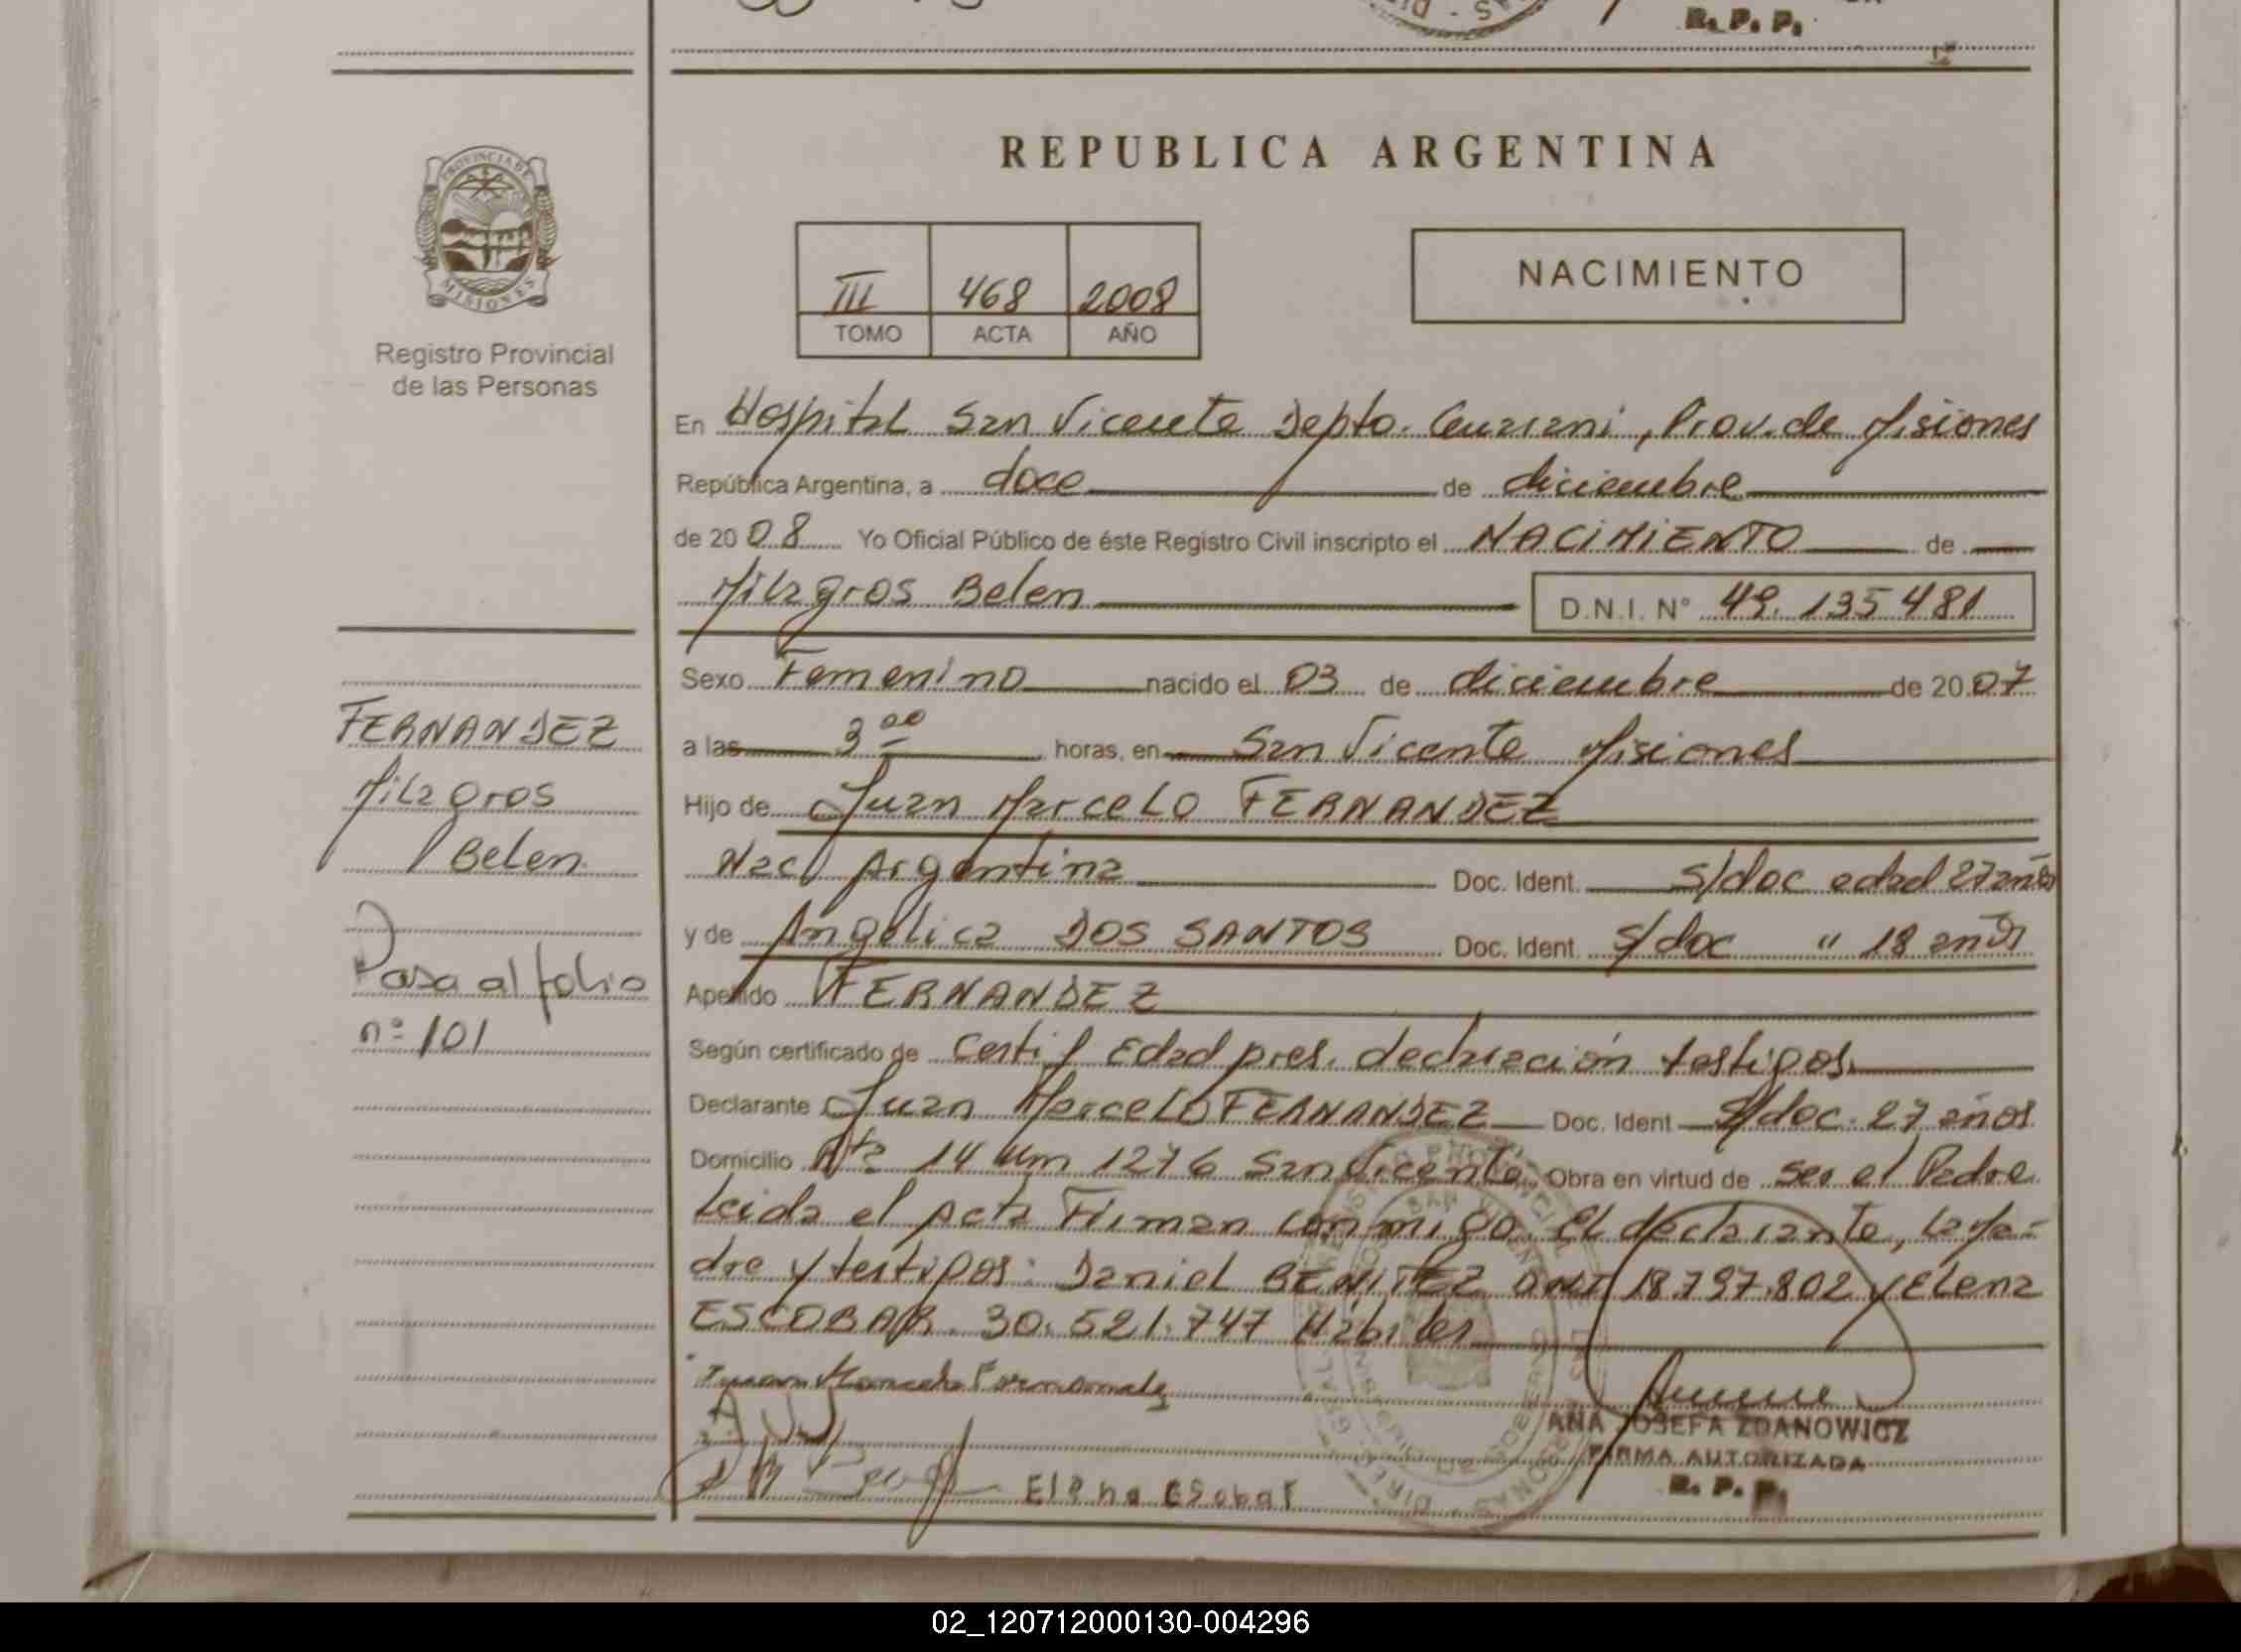 R. P. P.
PROVINCIA DE
MISIONES
Registro Provincial
de las Personas
REPUBLICA ARGENTINA
III 468 2008
TOMO ACTA AÑO
NACIMIENTO
En Hospital San Vicente Depto. Guarani, Prov. de Misiones
República Argentina, a doce de diciembre
de 2008 Yo Oficial Público de éste Registro Civil inscripto el NACIMIENTO de
Milagros Belen D.N.I. N° 49.135481
Sexo Femenino nacido el 03 de diciembre de 2007
a las 3 00 horas, en San Vicente Misiones
Hijo de Juan Marcelo FERNANDEZ
Nac Argentina Doc. Ident. s/doc edad 27 años
y de Angélica DOS SANTOS Doc. Ident. s/doc " 18 años
Apellido FERNANDEZ
Según certificado de Certif Edad pres. declaración testigos
Declarante Juan Marcelo FERNANDEZ Doc. Ident S/doc. 27 años
Domicilio Rta 14 Km 1276 San Vicente Obra en virtud de ser el Padre
Leida el Acta Firman conmigo el declarante, la Ma-
dre y testigos: Daniel BENITEZ DNI 18.797.802 y Elena
ESCOBAR. 30.521.747 Hábiles
FERNANDEZ
Milagros
Belen
Pasa al folio
nº 101
Elena Esobar
ANA JOSEFA ZDANOWICZ
FIRMA AUTORIZADA
R. P. P.
02_120712000130-004296